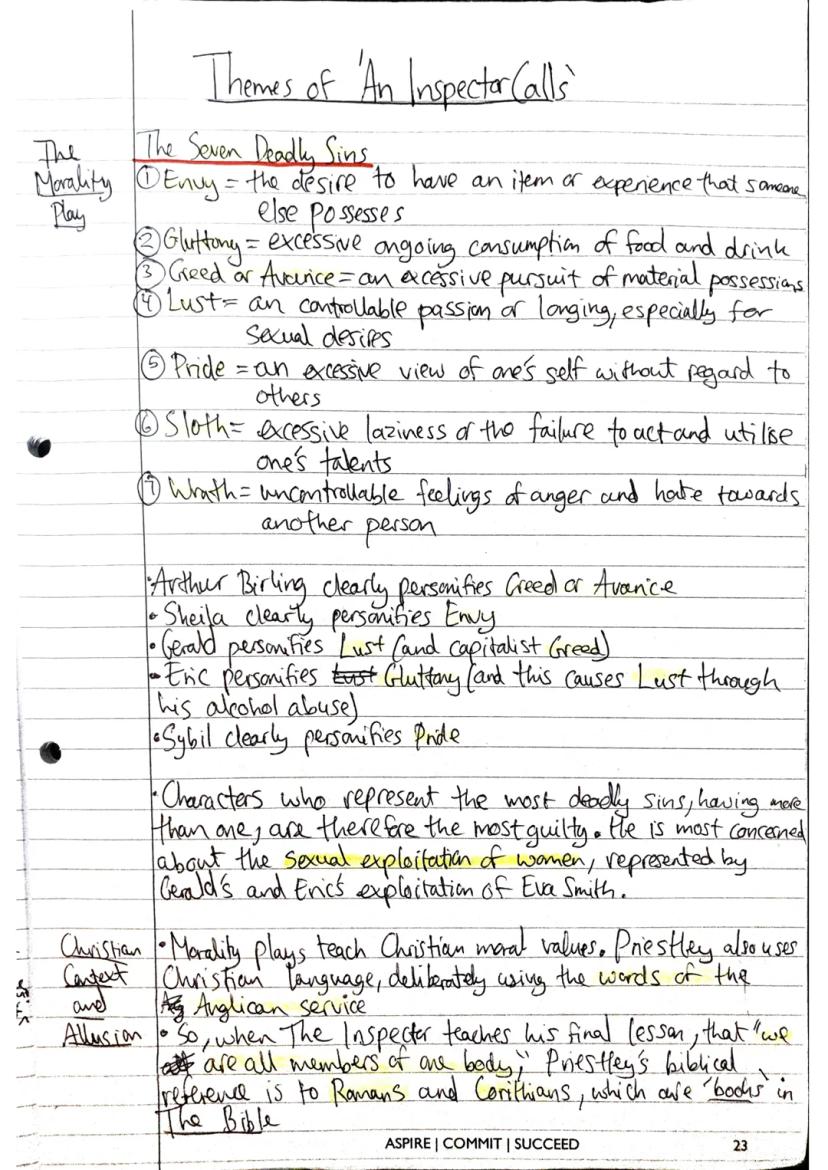 Themes of 'An Inspector Calls'
The
Morality
Play
The Seven Deadly Sins
① Envy = the desire to have an item or experience that someone
else possesses
② Gluttony = excessive ongoing consumption of food and drink
③ Greed or Avarice = an excessive pursuit of material possessions
④ Lust = an controllable passion or longing, especially for
sexual desires
⑤ Pride = an excessive view of one's self without regard to
others
⑥ Sloth = excessive laziness or the failure to act and utilise
one's talents
⑦ Wrath = uncontrollable feelings of anger and hate towards
another person
• Arthur Birling clearly personifies Greed or Avarice
• Sheila clearly personifies Envy
• Gerald personifies Lust (and capitalist Greed)
• Eric personifies Lust Gluttony (and this causes Lust through
his alcohol abuse)
• Sybil clearly personifies Pride
• Characters who represent the most deadly sins, having more
than one, are therefore the most guilty. He is most concerned
about the sexual exploitation of women, represented by
Gerald's and Eric's exploitation of Eva Smith.
Christian
Context
and
Allusion
• Morality plays teach Christian moral values. Priestley also uses
Christian language, deliberately using the words of the
Anglican service
• So, when The Inspector teaches his final lesson, that "we
are all members of one body," Priestley's biblical
reference is to Romans and Corithians, which are 'books' in
The Bible
ASPIRE | COMMIT | SUCCEED 23